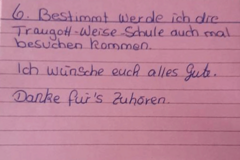 6. Bestimmt werde ich die
Traugott-Weise-Schule auch mal
besuchen kommen.
Ich wünsche euch alles Gute.
Danke für's Zuhören.